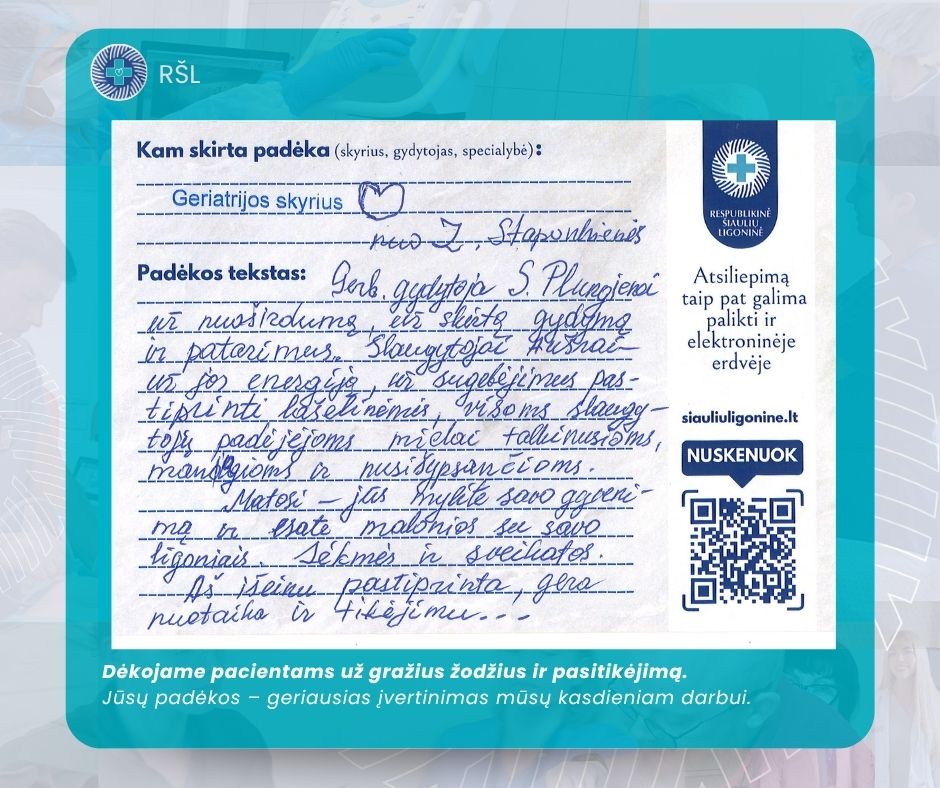 RŠL
Kam skirta padėka (skyrius, gydytojas, specialybė):
Geriatrijos skyrius
nuo Z. Staponkienės
Padėkos tekstas: Gerb. gydytoja S. Plungienei
už nuoširdumą, už skirtą gydymą
ir patarimus. Slaugytojai Aušrai
už jos energiją, už sugebėjimus pas-
tiprinti lašelinėmis, visoms slaugy-
tojų padėjėjoms mielai talkinusioms,
ir nusišypsančioms.
Matosi – jūs mylite savo gyveni-
mą ir esate malonios su savo
ligoniais. Sėkmės ir sveikatos.
Aš išeinu pastiprinta, gera
nuotaika ir tikėjimu...
RESPUBLIKINĖ
ŠIAULIŲ
LIGONINĖ
Atsiliepimą
taip pat galima
palikti ir
elektroninėje
erdvėje
siauliuligonine.lt
NUSKENUOK
Dėkojame pacientams už gražius žodžius ir pasitikėjimą.
Jūsų padėkos – geriausias įvertinimas mūsų kasdieniam darbui.